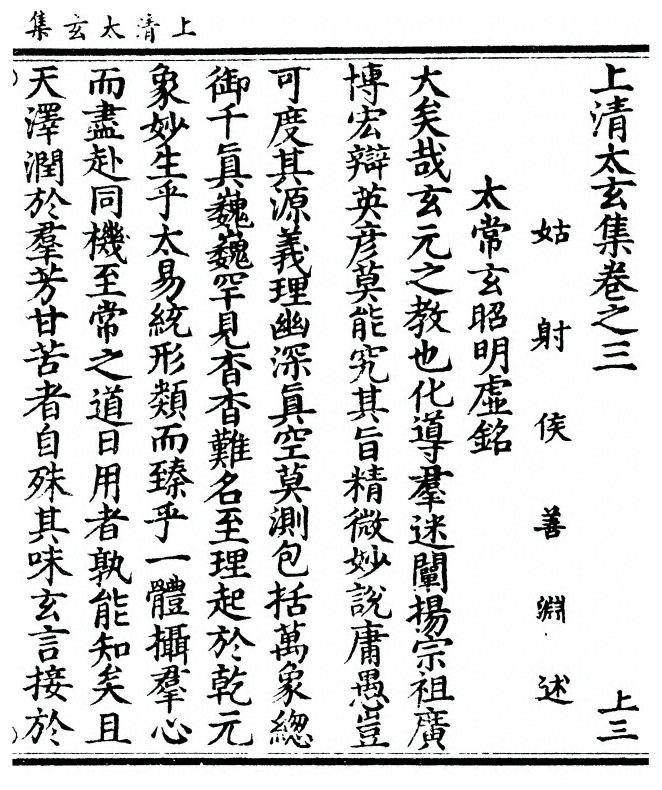 上清太玄集
上清太玄集卷之三
上三
姑射侯善淵述
太常玄昭明虛銘
大矣哉玄元之教也化導羣迷闡揚宗祖廣
博宏辯英彦莫能究其旨精微妙說庸愚豈
可度其源義理幽深眞空莫測包括萬象緫
御千眞巍巍罕見杳杳難名至理起於乾元
象妙生乎太易統形類而臻乎一體攝羣心
而盡赴同機至常之道日用者孰能知矣且
天澤潤於羣芳甘苦者自殊其味玄言接於